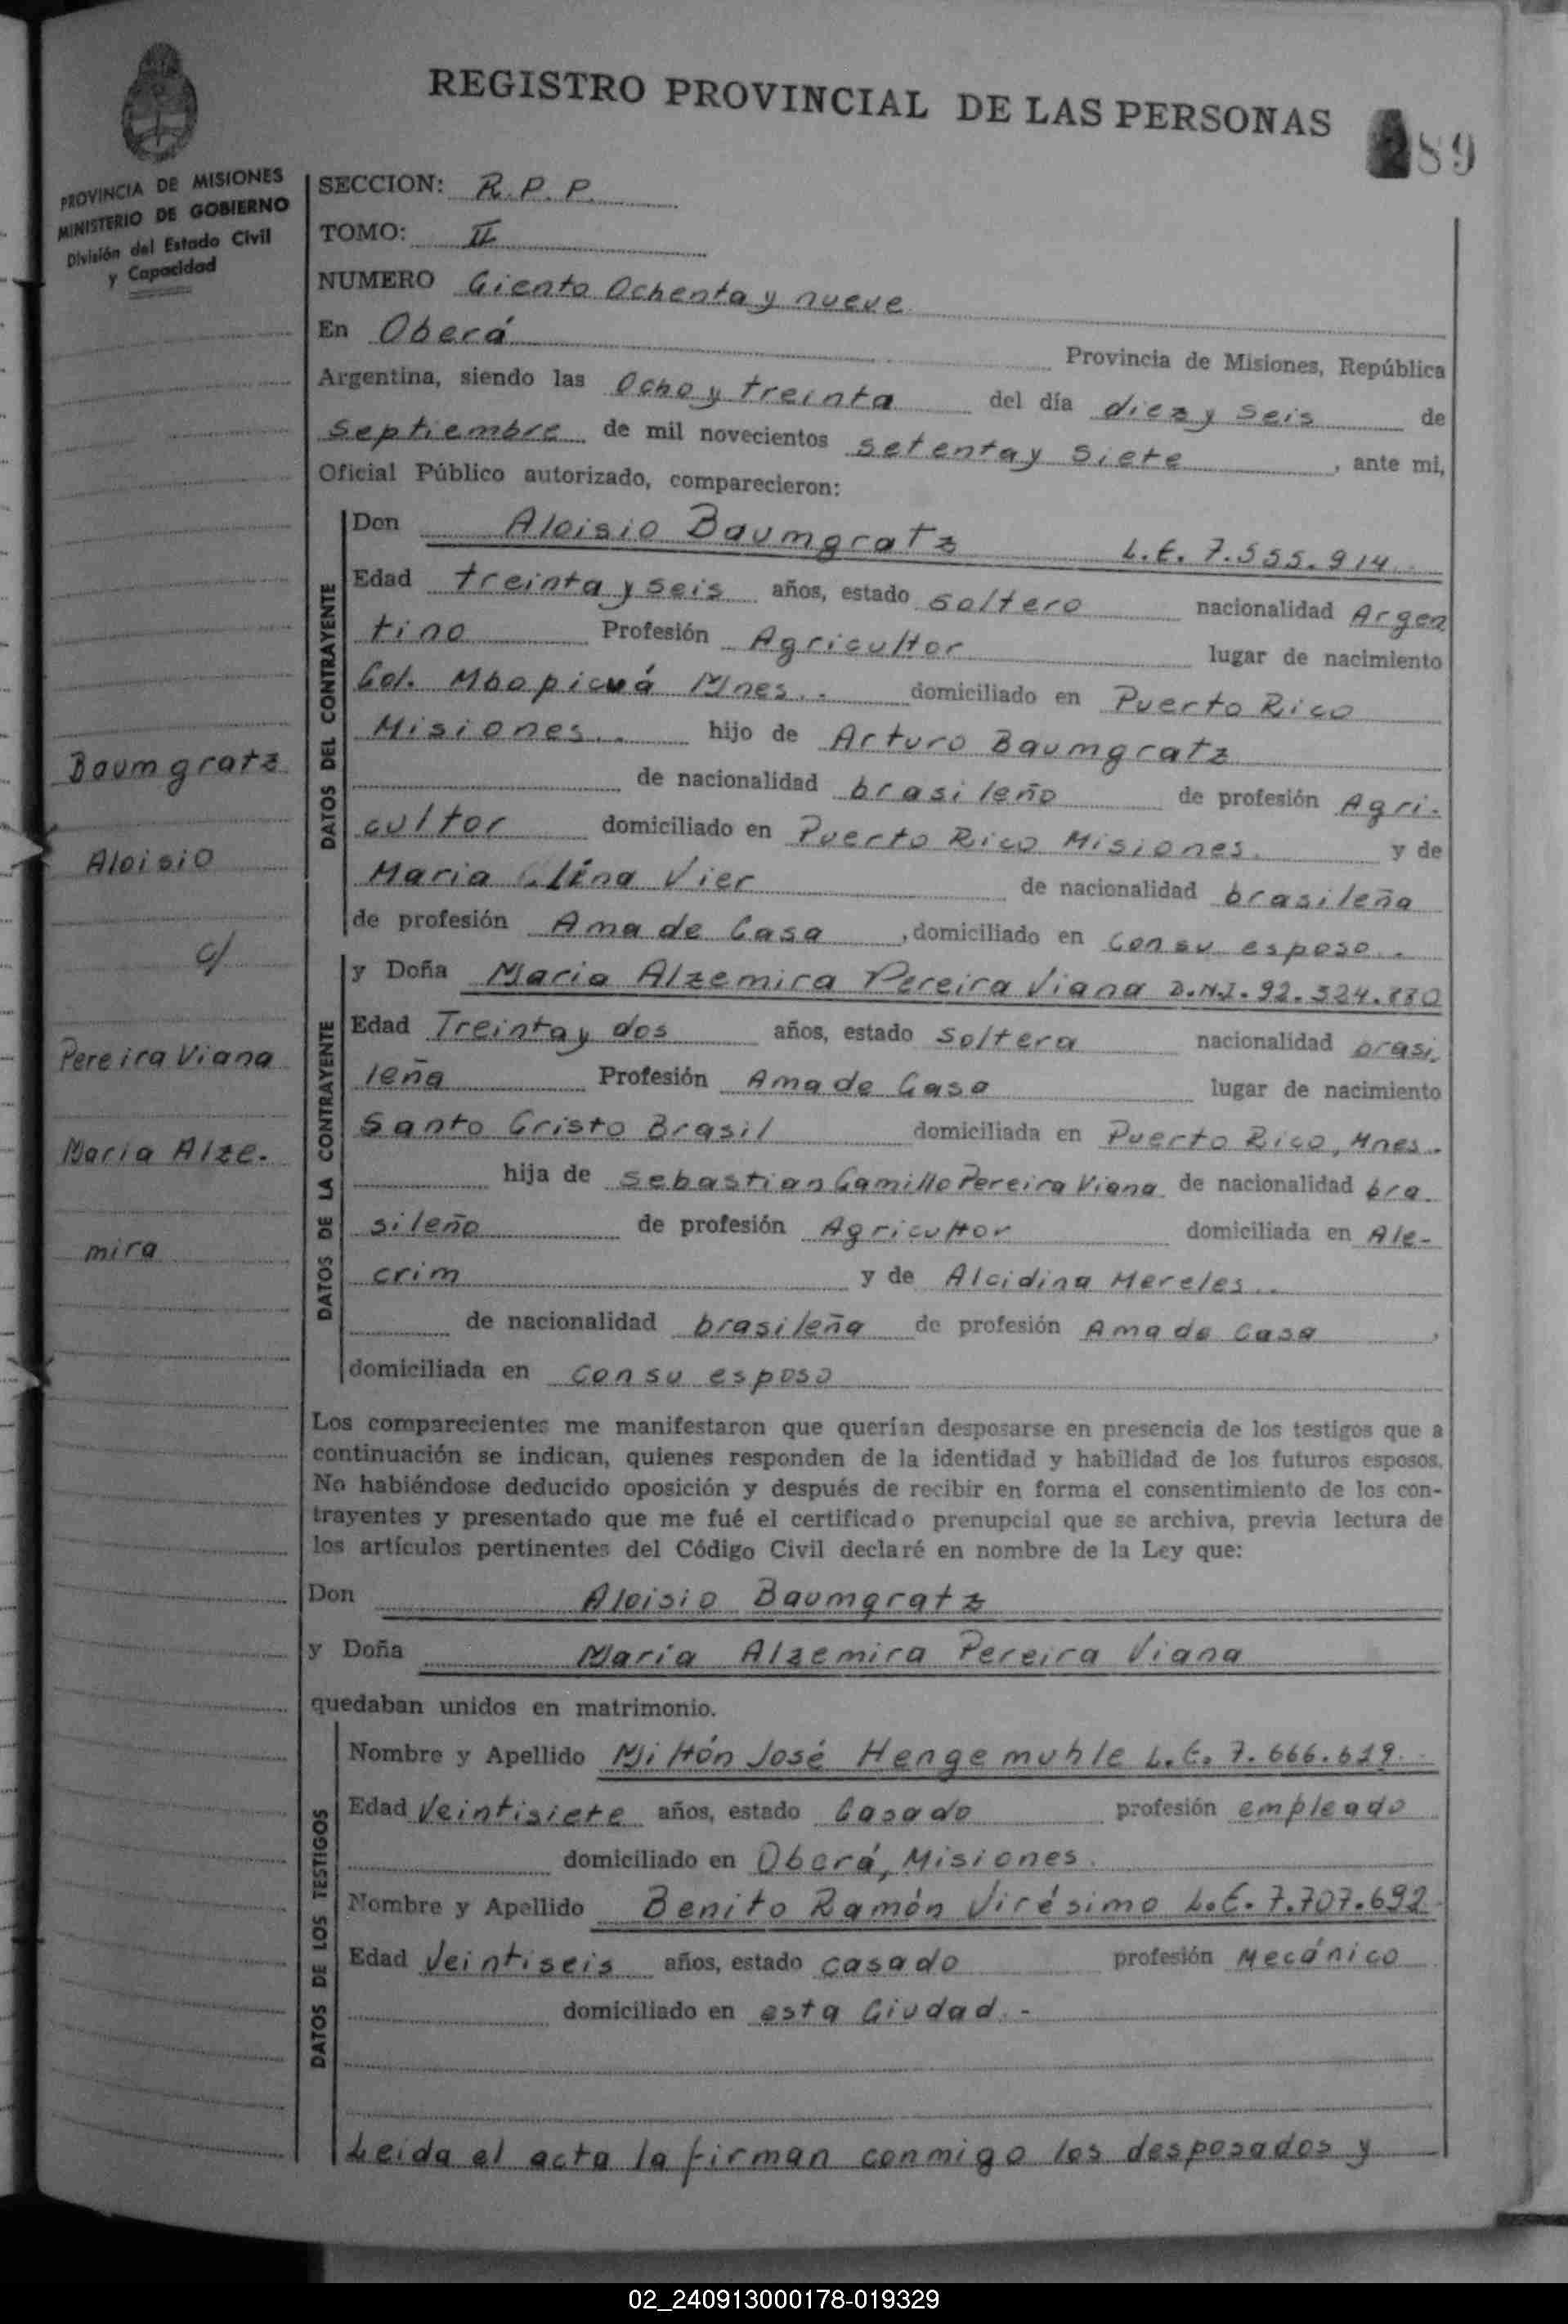 REGISTRO PROVINCIAL DE LAS PERSONAS
89
PROVINCIA DE MISIONES
MINISTERIO DE GOBIERNO
División del Estado Civil
y Capacidad
SECCION: R.P.P.
TOMO: II
NUMERO Ciento Ochenta y nueve
En Oberá Provincia de Misiones, República
Argentina, siendo las Ocho y treinta del día diez y seis de
septiembre de mil novecientos setenta y siete, ante mi,
Oficial Público autorizado, comparecieron:
DATOS DEL CONTRAYENTE
Don Aloisio Baumgratz L.E. 7.555.914
Edad treinta y seis años, estado soltero nacionalidad Argen
tino Profesión Agricultor lugar de nacimiento
Col. Mbopicuá Mnes.. domiciliado en Puerto Rico
Misiones.. hijo de Arturo Baumgratz
de nacionalidad brasileño de profesión Agri-
cultor domiciliado en Puerto Rico Misiones. y de
Maria Vier de nacionalidad brasileña
de profesión Ama de Casa, domiciliado en con su esposo..
DATOS DE LA CONTRAYENTE
y Doña Maria Alzemira Pereira Viana D.N.I. 92.324.
Edad Treinta y dos años, estado Soltera nacionalidad brasi
leña Profesión Ama de Casa lugar de nacimiento
Santo Cristo Brasil domiciliada en Puerto Rico, Mnes.
hija de Sebastian Camillo Pereira Viana de nacionalidad bra.
sileño de profesión Agricultor domiciliada en Ale-
crim y de Alcidina Mereles..
de nacionalidad brasileña de profesión Ama de Casa,
domiciliada en con su esposo
Baumgratz
Aloisio
c/
Pereira Viana
Maria Alze-
mira
Los comparecientes me manifestaron que querían desposarse en presencia de los testigos que a
continuación se indican, quienes responden de la identidad y habilidad de los futuros esposos.
No habiéndose deducido oposición y después de recibir en forma el consentimiento de los con-
trayentes y presentado que me fué el certificado prenupcial que se archiva, previa lectura de
los artículos pertinentes del Código Civil declaré en nombre de la Ley que:
Don Aloisio Baumgratz
y Doña María Alzemira Pereira Viana
quedaban unidos en matrimonio.
DATOS DE LOS TESTIGOS
Nombre y Apellido Miltón José Hengemuhle L.E. 7.666.619.
Edad Veintisiete años, estado Casado profesión empleado
domiciliado en Oberá, Misiones.
Nombre y Apellido Benito Ramón Virésimo L.E. 7.707.692
Edad Veintiseis años, estado casado profesión Mecánico
domiciliado en esta Ciudad.-
Leida el acta la firman conmigo los desposados y
02_240913000178-019329